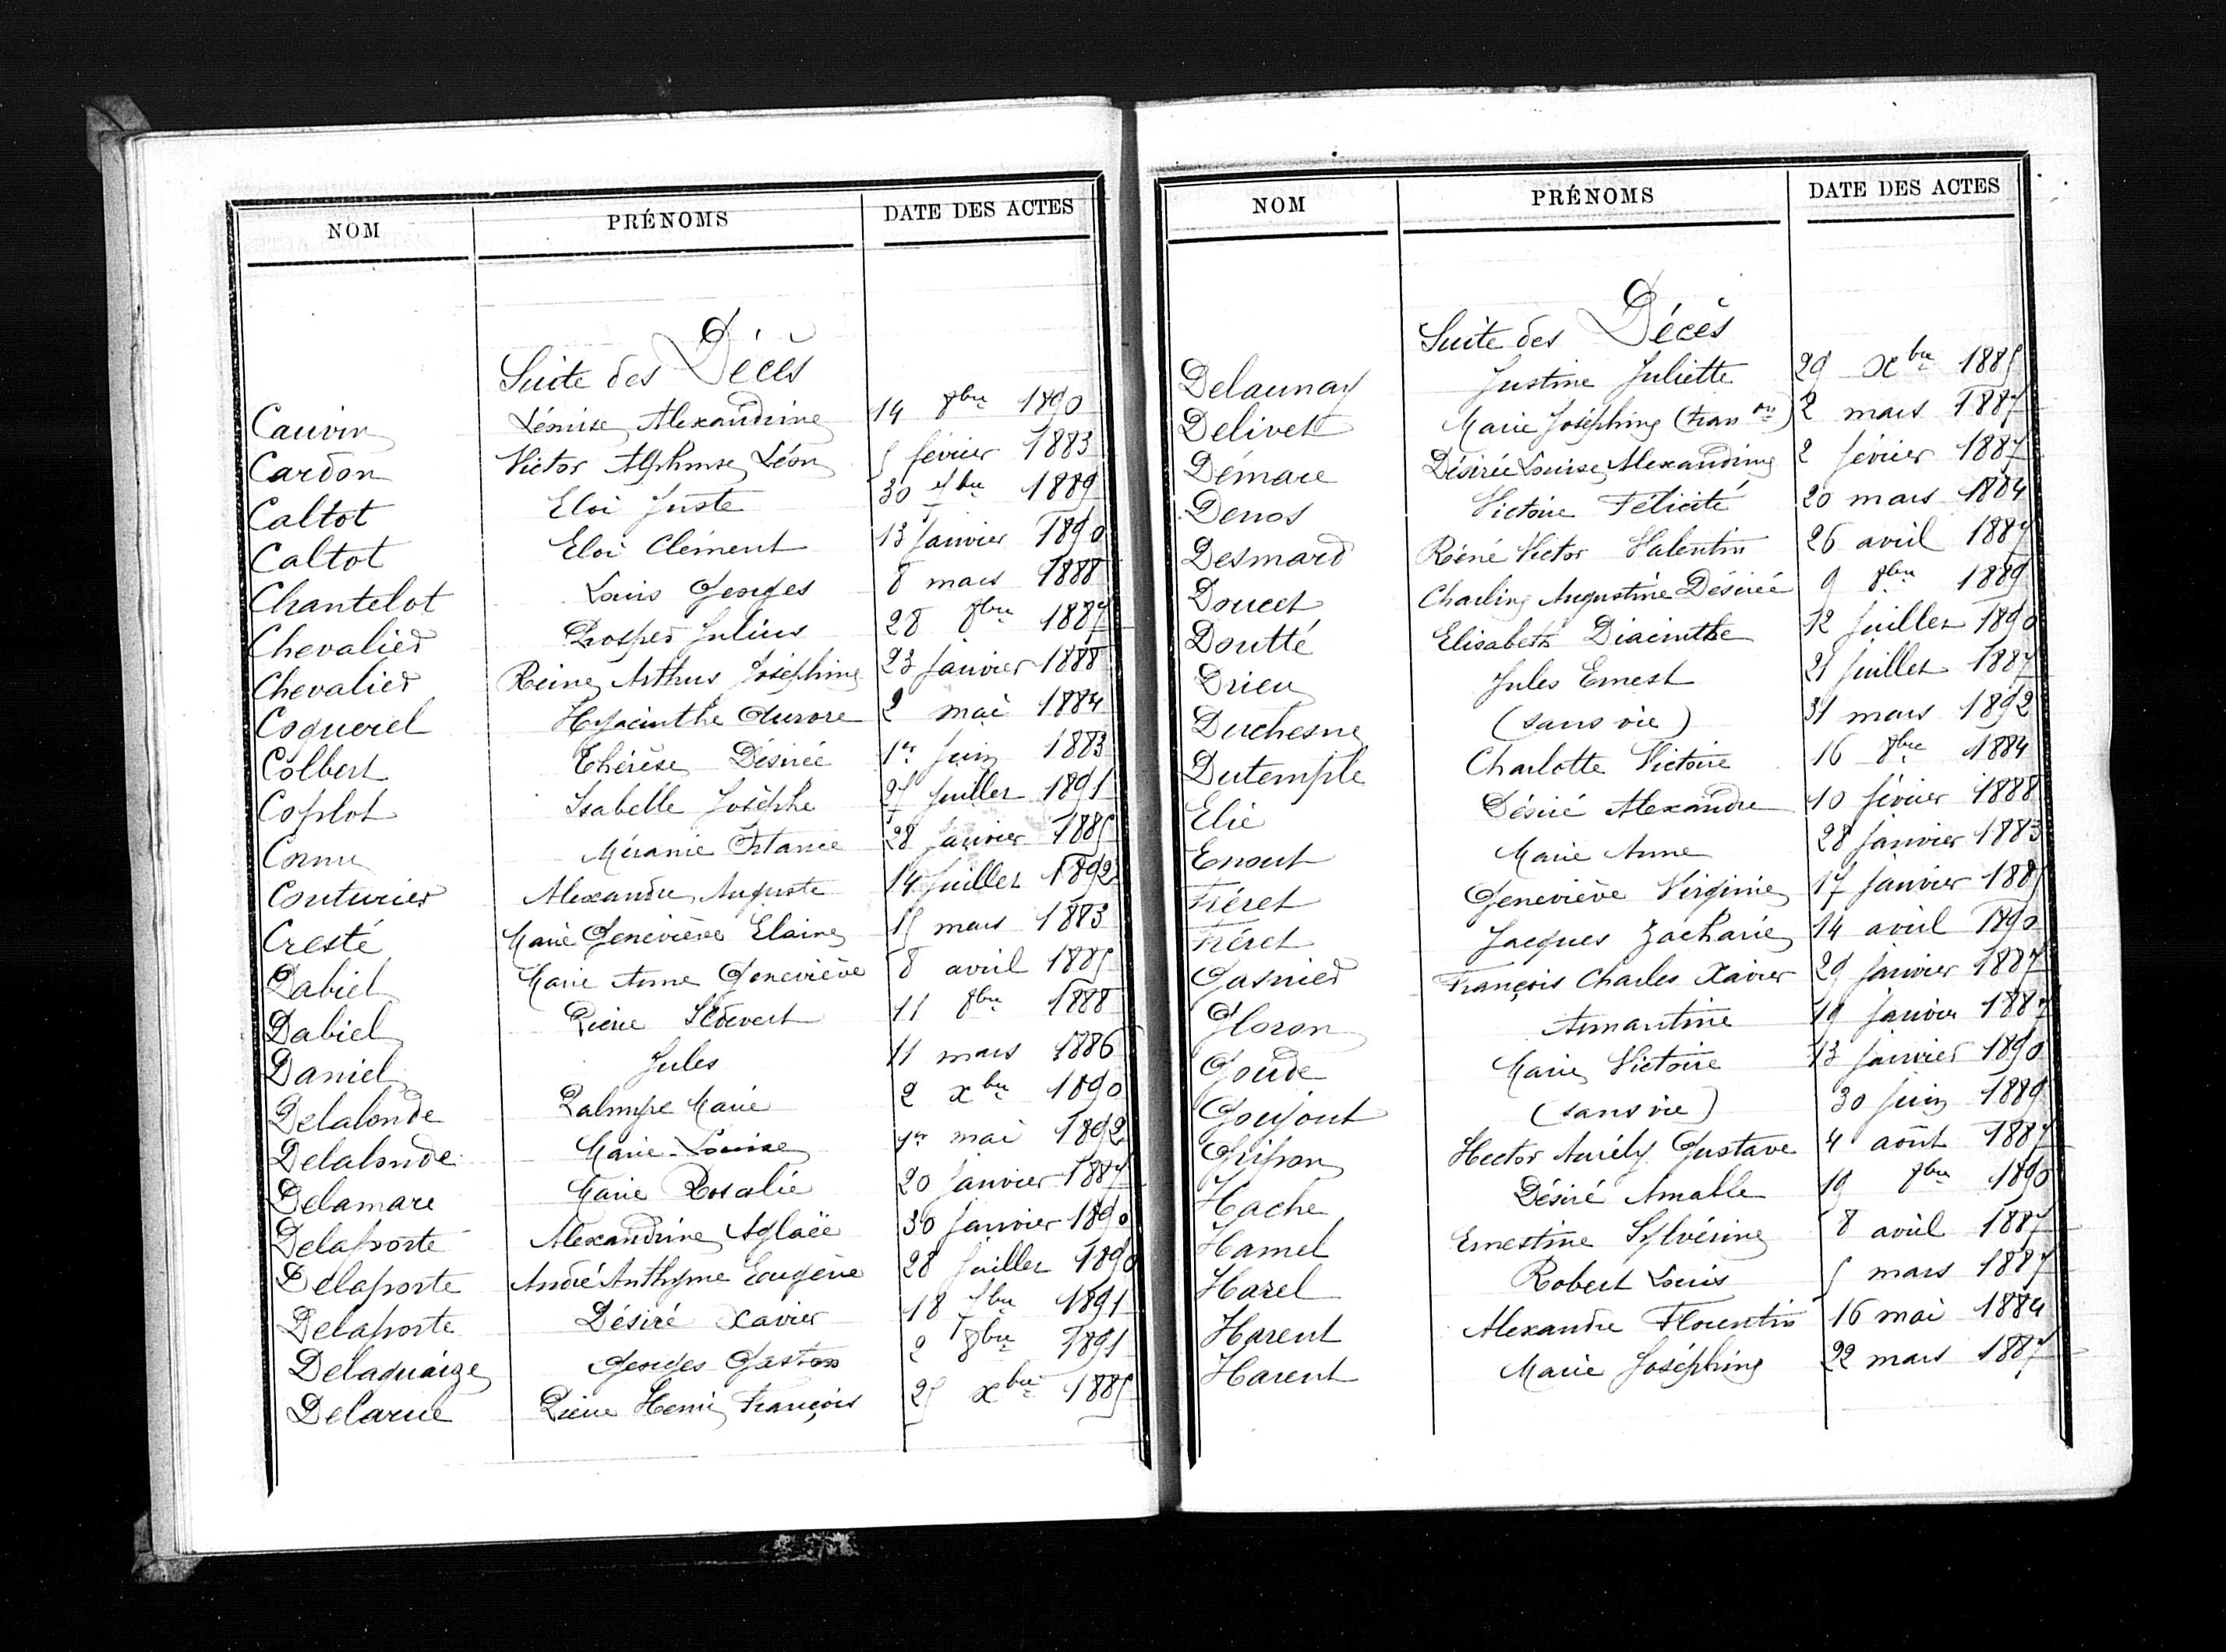 NOM PRÉNOMS DATE DES ACTES
Suite des Décès
Cauvin Lémise Alexandrine 14 8bre 1890
Cardon Victor Alphonse Léon 5 février 1883
Caltot Eloi Juste 30 7bre 1889
Caltot Eloi Clément 13 Janvier 1890
Chantelot Louis Georges 8 mars 1888
Chevalier Prosper Julius 28 8bre 1887
Chevalier Reine Arthus Joséphine 23 Janvier 1888
Coquerel Hyacinthe Aurore 2 mai 1884
Colbert Thérèse Désirée 1er Juin 1883
Coplot Isabelle Josèphe 27 Juillet 1891
Cornu Méranie 28 Janvier 1885
Couturier Alexandre Auguste 14 Juillet 1892
Cresté Marie Geneviève Elaine 15 mars 1883
Dabiel Marie Anne Geneviève 8 avril 1885
Dabiel Pierre 11 8bre 1888
Daniel Jules 11 mars 1886
Delalonde Palmyre Marie 2 xbre 1890
Delalonde Marie-Louise 1er mai 1892
Delamare Marie Rosalie 20 Janvier 1887
Delaporte Alexandrine Aglaëe 30 Janvier 1890
Delaporte André Anthyme Eugène 28 Juillet 1890
Delaporte Désiré Xavier 18 7bre 1891
Delaquaize Georges Gaston 2 8bre 1891
Delarue Pierre Henri François 25 xbre 1885
NOM PRÉNOMS DATE DES ACTES
Suite des Décès
Delaunay Justine Juliette 29 xbre 1885
Delivet Marie Joséphine (tran on) 2 mars 1887
Démare Désirée Louise Alexandrine 2 février 1887
Denos Victoire Félicité 20 mars 1884
Desmard Réné Victor Valentin 26 avril 1887
Doucet Charline Augustine Désirée 9 8bre 1889
Doutté Elisabeth Diacinthe 12 Juillet 1890
Drieu Jules Ernest 21 Juillet 1887
Duchesne (sans vie) 31 mars 1892
Dutemple Charlotte Victoire 16 8bre 1884
Elie Désiré Alexandre 10 février 1888
Enout Marie Anne 28 Janvier 1883
Féret Geneviève Virginie 17 Janvier 1885
Féret Jacques Zacharie 14 avril 1890
Gasnier François Charles Xavier 29 Janvier 1887
Gloron Armantine 19 Janvier 1887
Goude Marie Victoire 13 Janvier 1890
Goujout (sans vie) 30 Juin 1889
Gripon Hector Aurély Gustave 4 août 1887
Hache Désiré Amable 19 8bre 1890
Hamel Ernestine Sylvérine 8 avril 1887
Harel Robert Louis 5 mars 1887
Harent Alexandre Florentin 16 mai 1884
Harent Marie Joséphine 22 mars 1887